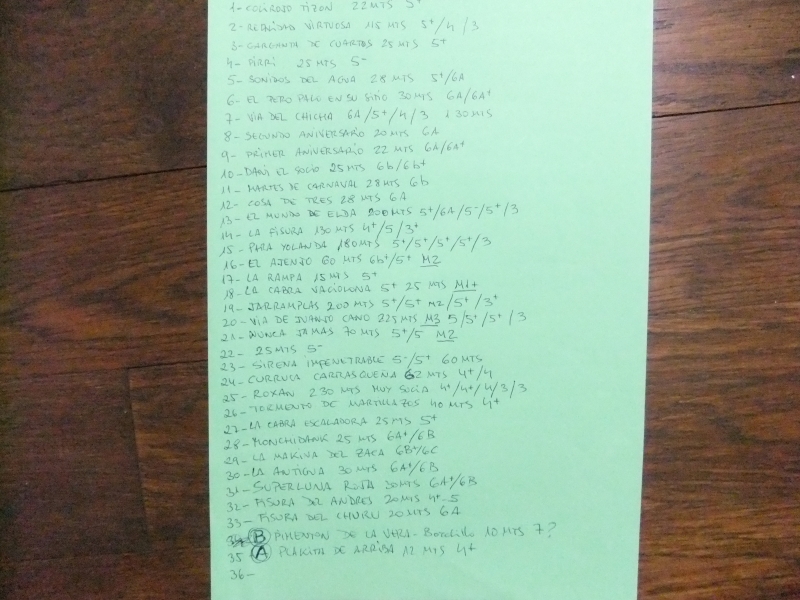 1- COLIROJO TIZON 22 MTS 5+
2- REALIDAD VIRTUOSA 115 MTS 5+/4/3
3- GARGANTA DE CUARTOS 25 MTS 5+
4- PIRRI 25 MTS 5-
5- SONIDOS DEL AGUA 28 MTS 5+/6A
6- EL PERO PALO EN SU SITIO 30 MTS 6A/6A+
7- VIA DEL CHICHA 6A/5+/4/3 130 MTS
8- SEGUNDO ANIVERSARIO 20 MTS 6A
9- PRIMER ANIVERSARIO 22 MTS 6A/6A+
10- DANI EL SOCIO 25 MTS 6b/6b+
11- MARTES DE CARNAVAL 28 MTS 6b
12- COSA DE TRES 28 MTS 6A
13- EL MUNDO DE ELBA 200 MTS 5+/6A/5-/5+/3
14- LA FISURA 130 MTS 4+/5/3+
15- PARA YOLANDA 180 MTS 5+/5+/5+/5+/3
16- EL AJENJO 60 MTS 6b+/5+ M2
17- LA RAMPA 15 MTS 5+
18- LA CABRA VACILONA 5+ 25 MTS M1+
19- JARRAMPLAS 200 MTS 5+/5+ M2/5+/3+
20- VIA DE JUANJO CANO 225 MTS M3 5/5+/5+/3
21- NUNCA JAMAS 70 MTS 5+/5 M2
22- 25 MTS 5-
23- SIRENA IMPENETRABLE 5-/5+ 60 MTS
24- CURRUCA CARRASQUEÑA 62 MTS 4+/4
25- ROXAN 230 MTS MUY SUCIA 4+/4+/4/3/3
26- TORMENTO DE MARTILLAZOS 40 MTS 4+
27- LA CABRA ESCALADORA 25 MTS 5+
28- MONCHIDANK 25 MTS 6A+/6B
29- LA MAKINA DEL ZACA 6B+/6C
30- LA ANTIGUA 30 MTS 6A+/6B
31- SUPERLUNA ROJA 30 MTS 6A+/6B
32- FISURA DEL ANDRES 20 MTS 4+-5
33- FISURA DEL CHURU 20 MTS 6A
34- B PIMENTON DE LA VERA - Bordillo 10 MTS 7?
35 A PLAKITA DE ARRIBA 12 MTS 4+
36-